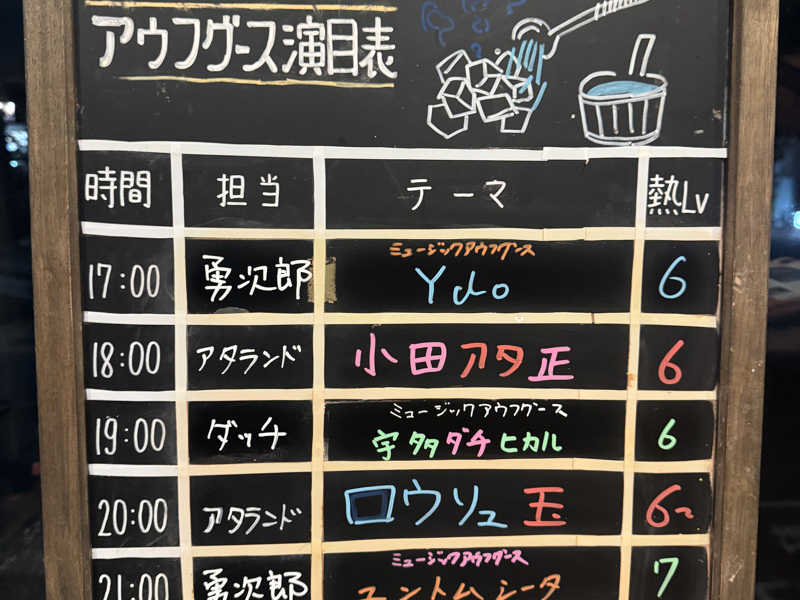 アウフグース演目表
時間 担当 テーマ 熱Lv
ミュージックアウフグース
17:00 勇次郎 Ydo 6
18:00 アタランド 小田アタ正 6
ミュージックアウフグース
19:00 ダッチ 宇多ダチヒカル 6
20:00 アタランド ロウリュ玉 6~
ミュージックアウフグース
21:00 勇次郎 エントムシータ 7